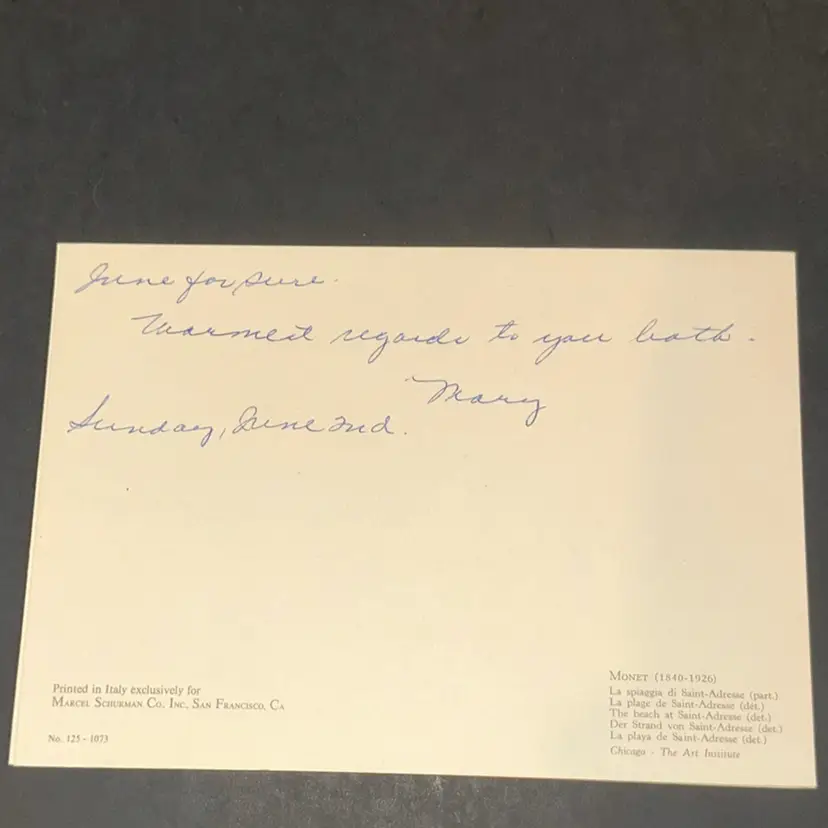 June for sure.
Warmest regards to you both.
Mary
Sunday, June 2nd.
Printed in Italy exclusively for
MARCEL SCHURMAN CO. INC. SAN FRANCISCO, CA
No. 125 - 1073
MONET (1840-1926)
La spiaggia di Saint-Adresse (part.)
La plage de Saint-Adresse (dét.)
The beach at Saint-Adresse (det.)
Der Strand von Saint-Adresse (det.)
La playa de Saint-Adresse (det.)
Chicago - The Art Institute